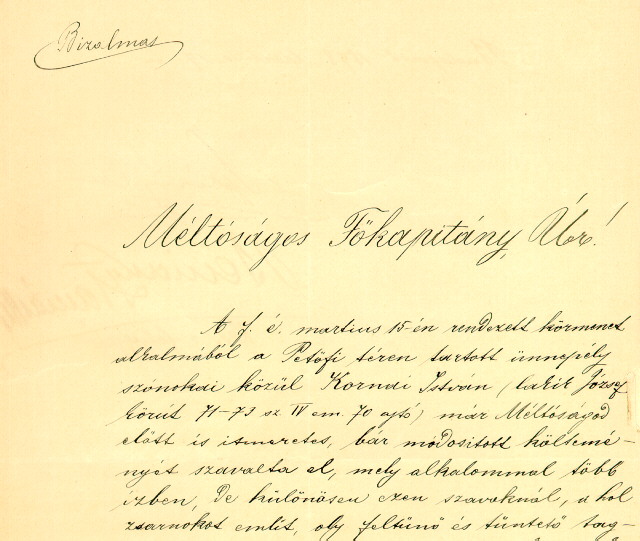 Bizalmas
Méltóságos Főkapitány Úr!
A f. é. martius 15-én rendezett körmenet
alkalmából a Petőfi téren tartott ünnepély
szónokai közül Kornai István (lakik József
körút 71-73 sz. IV em. 70 ajtó) már Méltóságod
előtt is ismeretes, bár módositott költemé-
nyét szavalta el, mely alkalommal több
izben, de különösen ezen szavaknál, a hol
zsarnokot emlit, oly feltünő és tüntető tag-